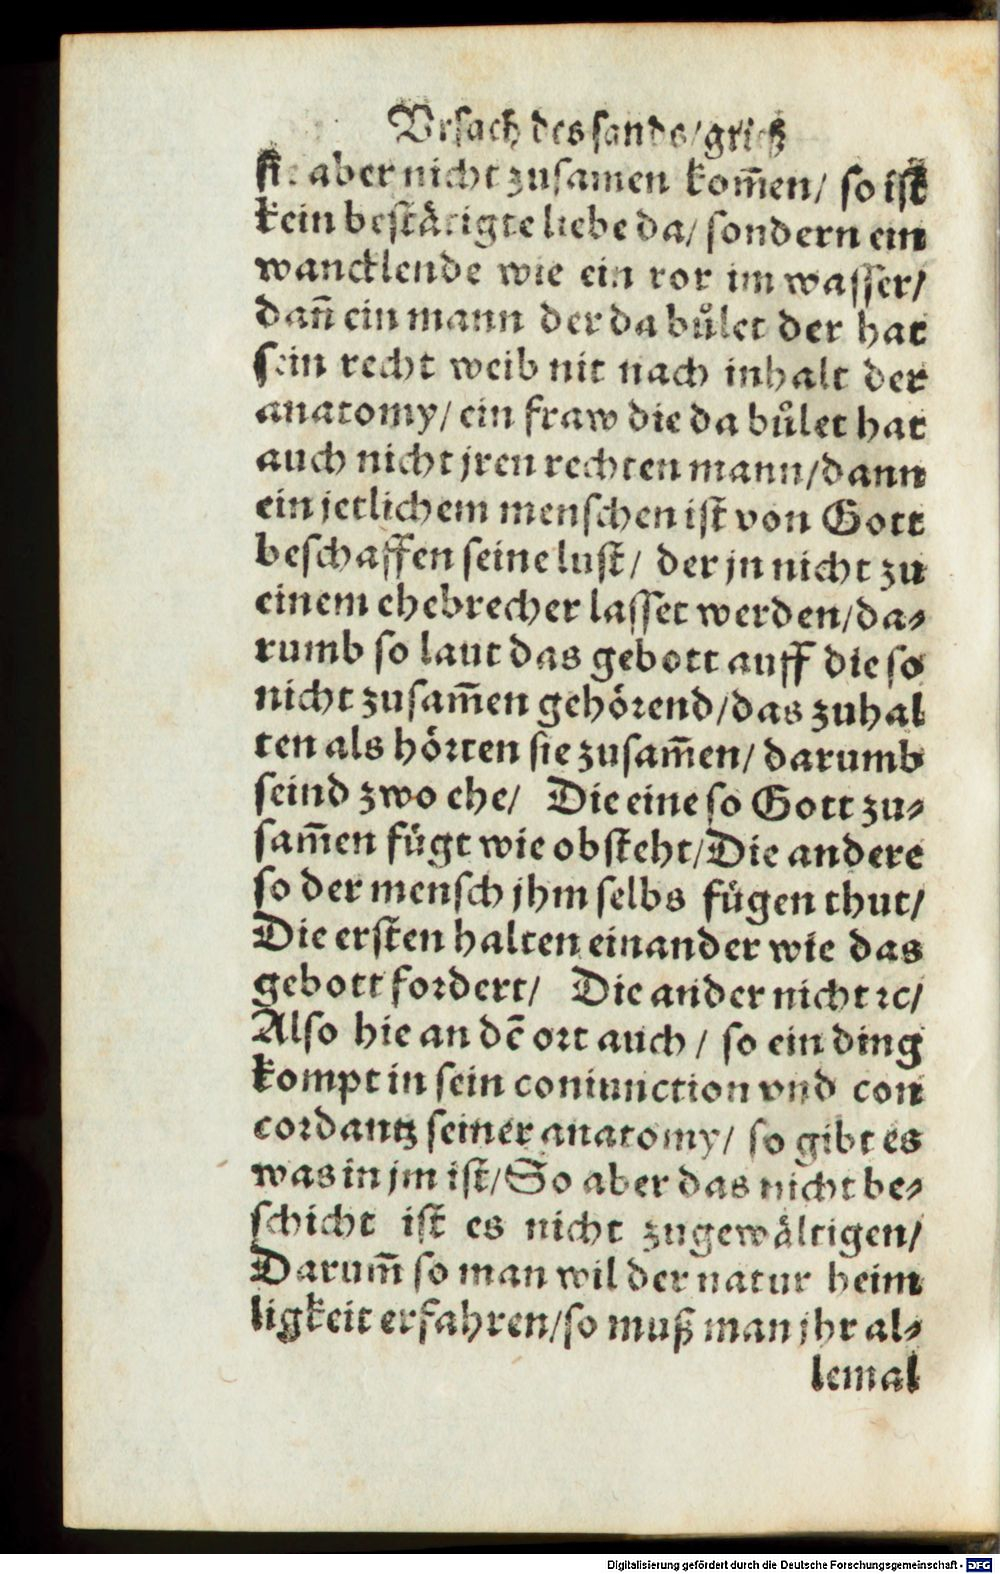 Vrsach des sands/grieß
sie aber nicht zusamen kom̃en/ so ist
kein bestätigte liebe da/ sondern ein
wancklende wie ein ror im wasser/
dañ ein mann der da bůlet der hat
sein recht weib nit nach inhalt der
anatomy/ ein fraw die da bůlet hat
auch nicht jren rechten mann/dann
ein jetlichem menschen ist von Gott
beschaffen seine lust/ der jn nicht zu
einem ehebrecher lasset werden/da⸗
rumb so laut das gebott auff die so
nicht zusam̃en gehörend/das zuhal
ten als hörten sie zusam̃en/ darumb
seind zwo ehe/ Die eine so Gott zu⸗
sam̃en fügt wie obsteht/Die andere
so der mensch jhm selbs fügen thut/
Die ersten halten einander wie das
gebott fordert/ Die ander nicht ꝛc/
Also hie an dē ort auch/ so ein ding
kompt in sein coniunction vnd con
cordantz seiner anatomy/ so gibt es
was in jm ist/So aber das nicht be⸗
schicht ist es nicht zugewältigen/
Darum̃ so man wil der natur heim
ligkeit erfahren/so muß man jhr al⸗
lemal
Digitalisierung gefördert durch die Deutsche Forschungsgemeinschaft - DFG